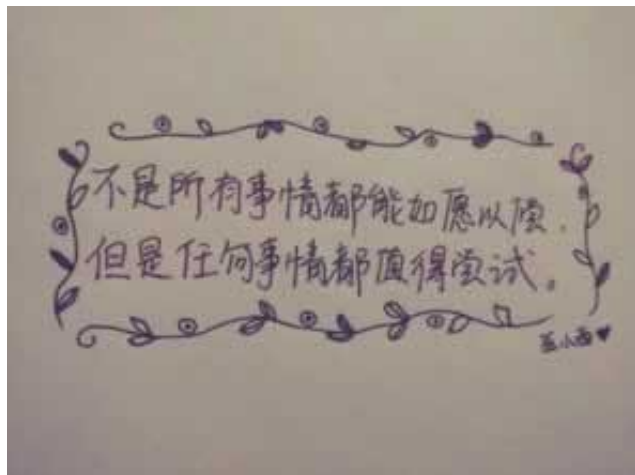 不是所有事情都能如愿以偿，
但是任何事情都值得尝试。
小西♥